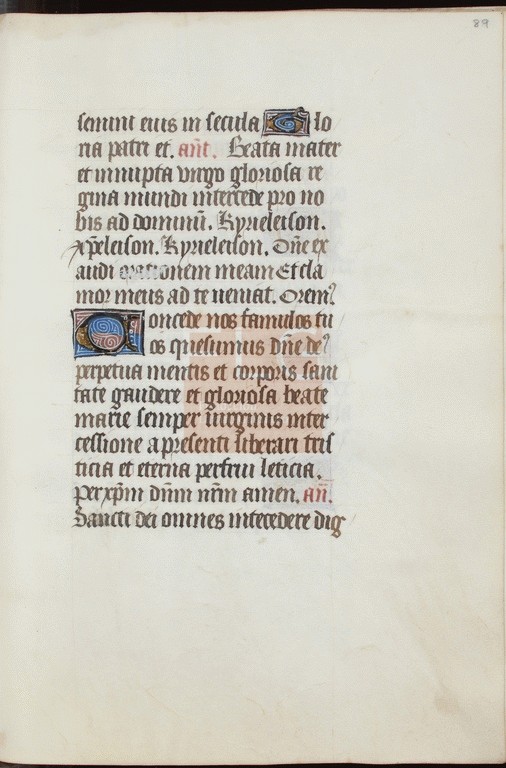 89
semini eius in secula Glo
ria patri et. añt. Beata mater
et innupta virgo gloriosa re
gina mundi intercede pro no
bis ad dominū. Kyrieleison.
xp̄eleison. Kyrieleison. Dn̄e ex
audi orationem meam Et cla
mor meus ad te veniat. Orem⁹
Concede nos famulos tu
os quesumus dn̄e de⁹
perpetua mentis et corporis sani
tate gaudere et gloriosa beate
marie semper uirginis inter
cessione a presenti liberari tris
ticia et eterna perfrui leticia.
Per xp̄m dn̄m nr̄m amen. an̄.
Sancti dei omnes intecedere dig